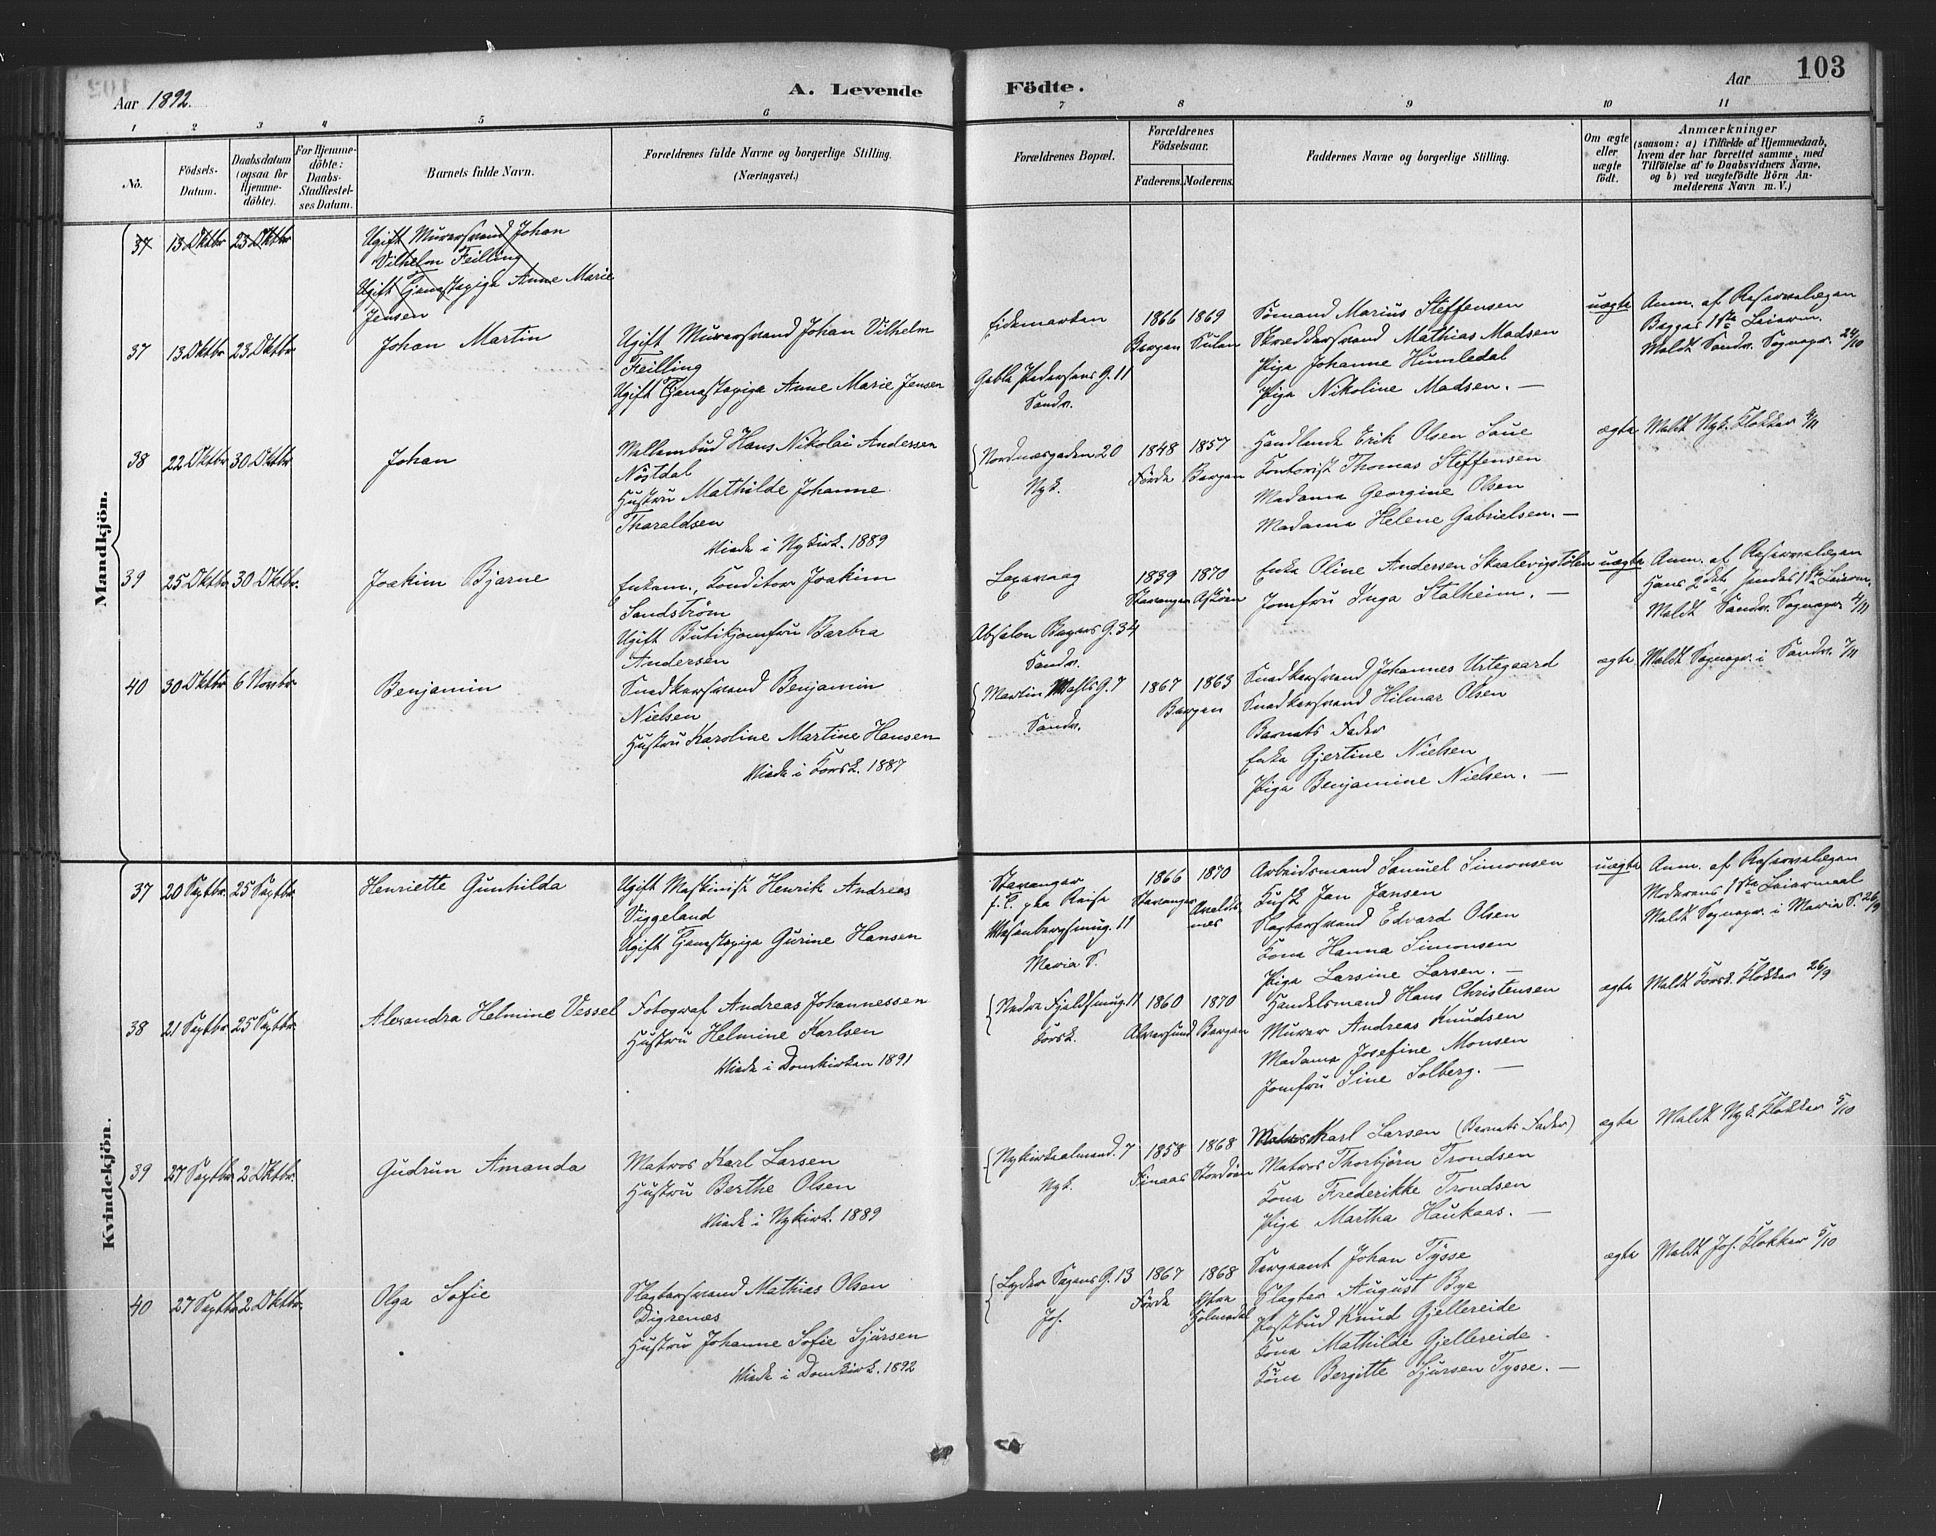 Aar 1892.
A. Levende
Födte.
Aar
103
1 2 3 4 5 6 7 8 9 10 11
No.
Födsels-
Datum.
Daabsdatum
(ogsaa for
Hjemme-
döbte).
For Hjemme-
döbte:
Daabs-
Stadfæstel-
ses Datum.
Barnets fulde Navn.
Forældrenes fulde Navne og borgerlige Stilling.
(Næringsvei.)
Forældrenes Bopæl.
Forældrenes
Födselsaar.
Faderens. Moderens.
Faddernes Navne og borgerlige Stilling.
Om ægte
eller
uægte
födt.
Anmærkninger
(saasom: a) i Tilfælde af Hjemmedaab,
hvem der har forrettet samme, med
Tilföielse af to Daabsvidners Navne,
og b) ved uægtefödte Börn An-
melderens Navn m. V.)
Mandkjön.
37 13 Oktbr 23 Oktbr
Ugift Murersvend Johan
Vilhelm Feilling
Ugift Tjenestepige Anne Marie
Jensen
37 13 Oktbr 23 Oktbr
Johan Martin
Ugift Murersvend Johan Vilhelm
Feilling
Ugift Tjenestepige Anne Marie Jensen
Eidemarken
Gabla Pedersens G. 11
Sandv.
1866 1869
Bergen Sulen
Sömand Marius Steffensen
Skræddersvend Mathias Madsen
Pige Johanne Humledal
Pige Nikoline Madsen. —
uægte
Anm. af Reservelægen
Begges 1ste Leierm.
Meldt Sandv. Sognepr. 24/10
38 22 Oktbr 30 Oktbr
Johan
Mellembud Hans Nikolai Andersen
Nöstdal
Hustru Mathilde Johanne
Tharaldsen
Viede i Nykirk. 1889
Nordnæsgaden 20
Nyk.
1848 1857
Förde Bergen
Handlende Erik Olsen Laue
Kontorist Thomas Steffensen
Madame Georgine Olsen
Madame Helene Gabrielsen. —
ægte
Meldt Nyk. Klokker 4/11
39 25 Oktbr 30 Oktbr.
Joakim Bjarne
Enkem., Konditor Joakim
Sandström
Ugift Butikjomfru Barbra
Andersen
Laxevaag
Absalon Beyers G. 34
Sandv.
1839 1870
Stavanger Askøen
Enke Oline Andersen Skaalevigstølen
Jomfru Inga Stalheim. —
uægte
Anm. af Reservelægen
Hans 2det hendes 1ste Leierm.
Meldt Sandv. Sognepr. 4/11
40 30 Oktbr 6 Novbr
Benjamin
Snedkersvend Benjamin
Nielsen
Hustru Karoline Martine Hansen
Viede i Korsk. 1887
Martin Vahls G. 7
Sandv.
1867 1863
Bergen
Snedkersvend Johannes Urtegaard
Snedkersvend Hilmar Olsen
Barnets Fader
Enke Gjertine Nielsen
Pige Benjamine Nielsen. —
ægte
Meldt Sognepr. i Sandv. 7/11
Kvindekjön.
37 20 Septbr. 25 Septbr.
Henriette Gunhilda
Ugift Maskinist Henrik Andreas
Viggeland
Ugift Tjenestepige Gurine Hansen
Stavanger
f. T. paa Reise
Wesenbergsmug. 11
Maria S.
1866 1870
Stavanger Avalds-
nes
Arbeidsmand Samuel Simonsen
Kusk Jan Jansen
Slagtersvend Edvard Olsen
Kone Hanna Simonsen
Pige Larsine Larsen. —
uægte
Anm. af Reservelægen
Moderens 1ste Leiermaal
Meldt Sognepr. i Maria S. 26/9
38 21 Septbr 25 Septbr.
Alexandra Helmine Vessel
Fotograf Andreas Johannessen
Hustru Helmine Karlsen
Viede i Domkirken 1891
Nedre Fjeldsmug. 11
Korsk.
1860 1870
Alversund Bergen
Handelsmand Hans Christensen
Murer Andreas Knudsen
Madame Josefine Monsen
Jomfru Sine Solberg. —
ægte
Meldt Korsk. Klokker 26/9
39 27 Septbr. 2 Oktbr.
Gudrun Amanda
Matros Karl Larsen
Hustru Berthe Olsen
Viede i Nykirk. 1889
Nykirkealmend. 7
Nyk.
1858 1868
Finaas Stordøen
Matros Karl Larsen (Barnets Fader)
Matros Thorbjörn Trondsen
Kone Frederikke Trondsen
Pige Martha Haukaas. —
ægte
Meldt Nyk. Klokker 5/10
40 27 Septbr 2 Oktbr.
Olga Sofie
Slagtersvend Mathias Olsen
Digrenes
Hustru Johanne Sofie Sjursen
Viede i Domkirk. 1892
Lyder Sagens G. 13
Joh.
1867 1868
Förde Ytre
Holmedal
Sergeant Johan Tysse
Slagter August Bye
Postbud Knud Gjellereide
Kone Mathilde Gjellereide
Kone Bergitte Sjursen Tysse. —
ægte
Meldt Joh. Klokker 5/10